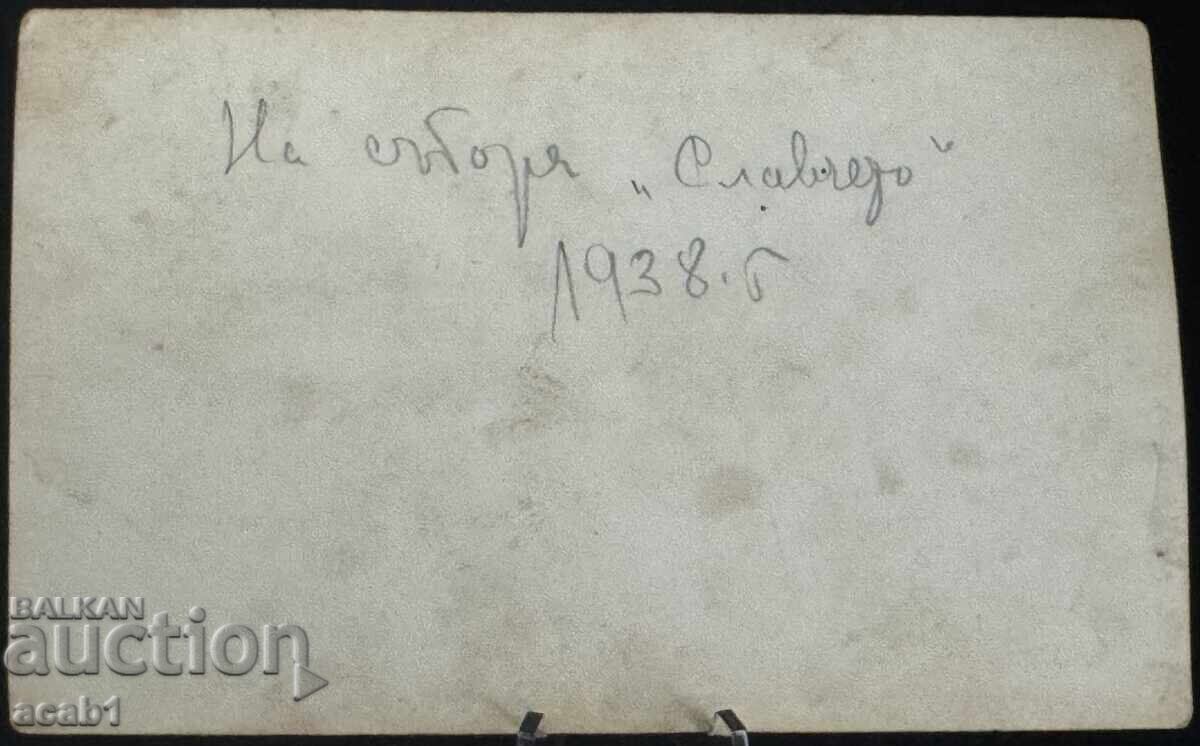 На събора „Славчедо“
1938.г
BALKAN
auction
acab1